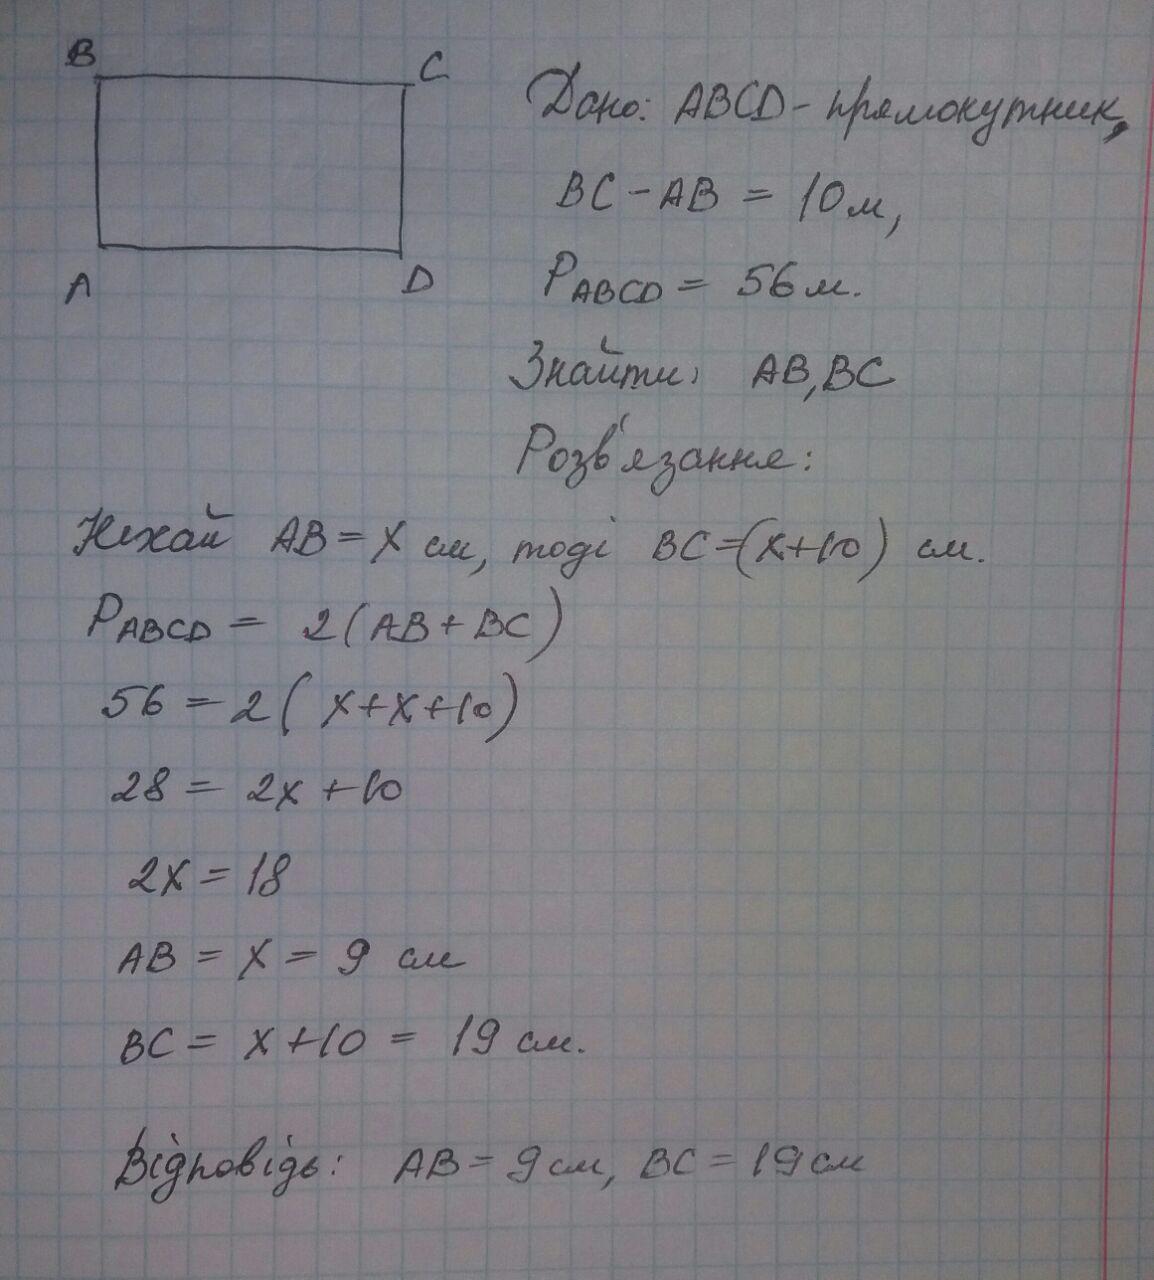 B
C
A
D
Дано: ABCD - прямокутник,
BC - AB = 10 м,
P ABCD = 56 м.
Знайти: AB, BC
Розв'язання:
Нехай AB = x см, тоді BC = (x + 10) см.
P ABCD = 2 (AB + BC)
56 = 2 ( x + x + 10)
28 = 2x + 10
2x = 18
AB = x = 9 см
BC = x + 10 = 19 см.
Відповідь: AB = 9 см, BC = 19 см